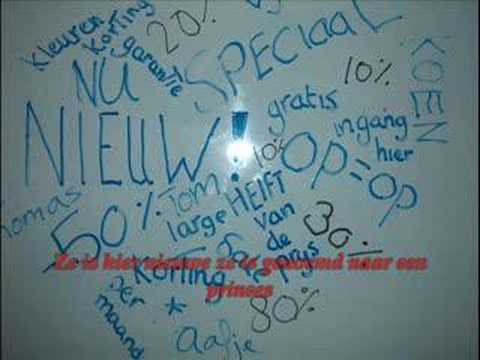 Kleuren
Korting
garantie
20%
SPECIAAL
KOEN
NU
NIEUW!
10%
gratis
ingang
hier
10%
Op=op
Thomas
50%
Tom
large
HElFT
van
de
prys
30%
Ze is hier nieuwe ze is genoemd naar een
prinses
Korting
per
maand
*
80%
Aafje